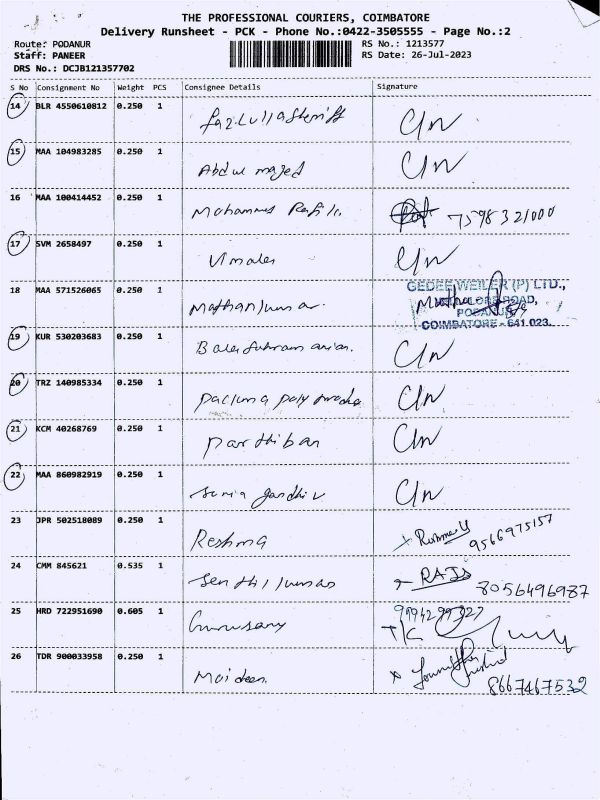 THE PROFESSIONAL COURIERS, COIMBATORE
Delivery Runsheet - PCK - Phone No.:0422-3505555 - Page No.:2
Route: PODANUR RS No.: 1213577
Staff: PANEER RS Date: 26-Jul-2023
DRS No.: DCJB121357702
S No Consignment No Weight PCS Consignee Details Signature
14 BLR 4550610812 0.250 1
15 MAA 104983285 0.250 1 Abdul majed
16 MAA 100414452 0.250 1 Mohammed Rafi 7598321000
17 SVM 2658497 0.250 1 Vmalen
18 MAA 571526065 0.250 1 Mathankumar
GEDEE WEILER (P) LTD.,
ROAD,
PODANUR
COIMBATORE - 641 023.
19 KUR 530203683 0.250 1
20 TRZ 140985334 0.250 1 poly
21 KCM 40268769 0.250 1 Parthiban
22 MAA 860982919 0.250 1 gandhi
23 JPR 502518089 0.250 1 Reshma 9566975157
24 CMM 845621 0.535 1 Senthilkumar 8056496987
25 HRD 722951690 0.605 1 Gurusamy T/C
26 TDR 900033958 0.250 1 Maideen. 8667467532